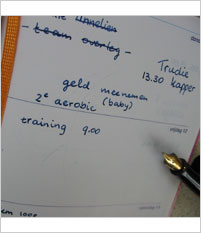 - team overleg -
Trudie
13.30 kapper
geld meenemen
2e aerobic (baby)
training 9.00